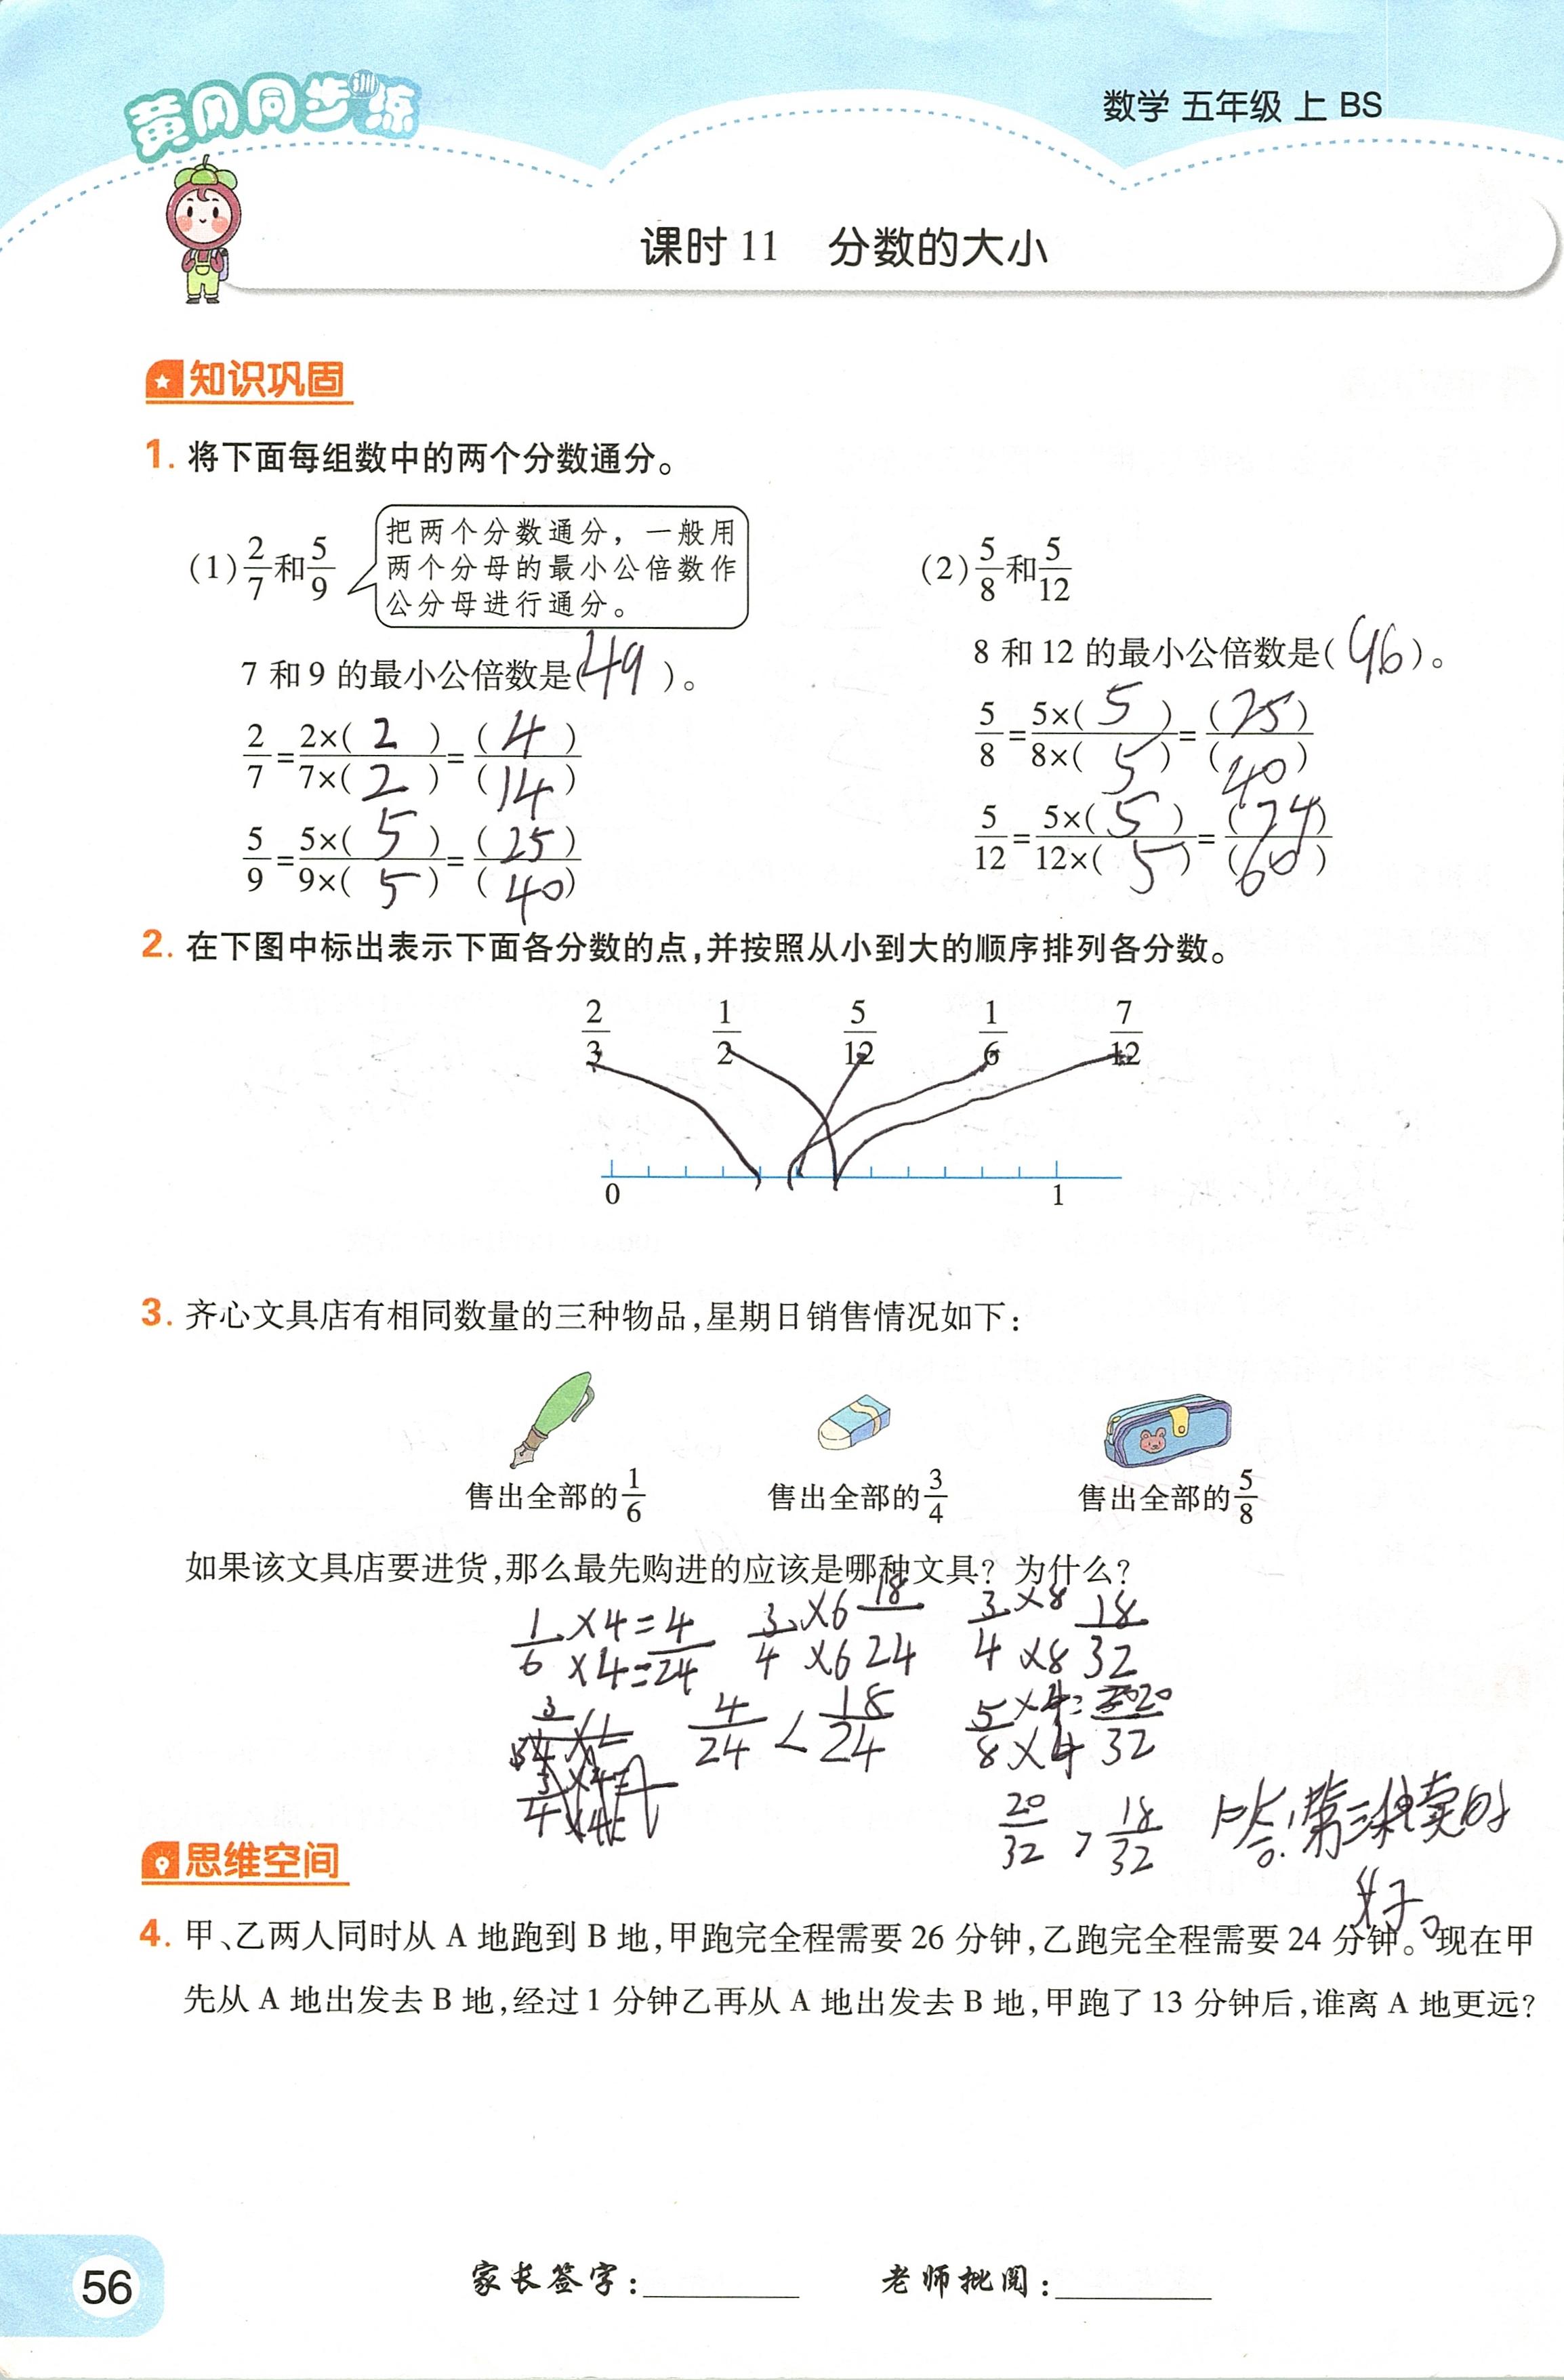 黄冈同步训练
数学 五年级 上 BS
课时 11 分数的大小
知识巩固
1. 将下面每组数中的两个分数通分。
(1) 2/7 和 5/9
把两个分数通分，一般用
两个分母的最小公倍数作
公分母进行通分。
7 和 9 的最小公倍数是( 49 )。
2/7 = 2×( 2 )/7×( 2 ) = ( 4 )/( 14 )
5/9 = 5×( 5 )/9×( 5 ) = ( 25 )/( 40 )
(2) 5/8 和 5/12
8 和 12 的最小公倍数是( 96 )。
5/8 = 5×( 5 )/8×( 5 ) = ( 25 )/( 40 )
5/12 = 5×( 5 )/12×( 5 ) = ( 24 )/( 60 )
2. 在下图中标出表示下面各分数的点,并按照从小到大的顺序排列各分数。
2/3 1/2 5/12 1/6 7/12
0 1
3. 齐心文具店有相同数量的三种物品,星期日销售情况如下:
售出全部的 1/6 售出全部的 3/4 售出全部的 5/8
如果该文具店要进货,那么最先购进的应该是哪种文具？为什么？
1/6 ×4=4 / ×4=24 3/4 ×6 18 / ×6 24 3/4 ×8 18 / ×8 32
4/24 < 18/24 5/8 ×4= 20 / ×4 32
20/32 > 18/32 答:第三种卖的
好。
思维空间
4. 甲、乙两人同时从 A 地跑到 B 地,甲跑完全程需要 26 分钟,乙跑完全程需要 24 分钟。现在甲
先从 A 地出发去 B 地,经过 1 分钟乙再从 A 地出发去 B 地,甲跑了 13 分钟后,谁离 A 地更远？
56
家长签字:________ 老师批阅:________